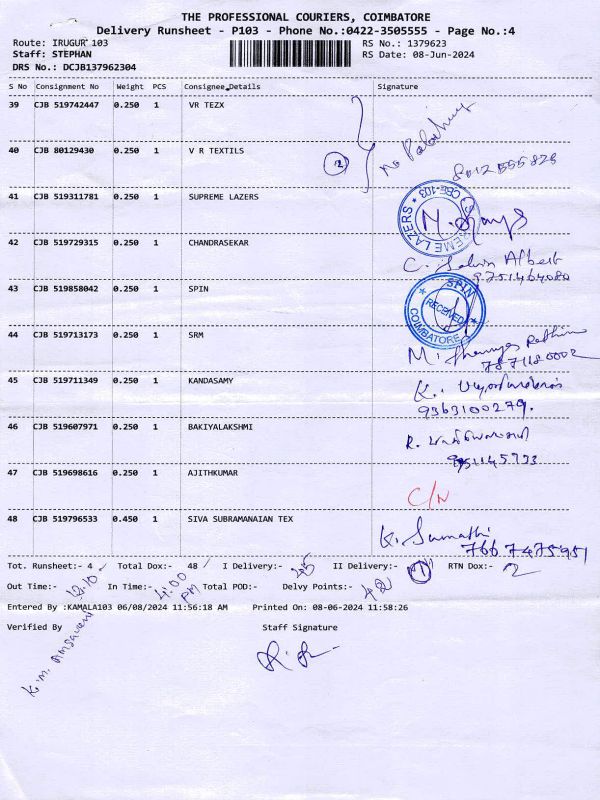 THE PROFESSIONAL COURIERS, COIMBATORE
Delivery Runsheet - P103 - Phone No.:0422-3505555 - Page No.:4
Route: IRUGUR 103 RS No.: 1379623
Staff: STEPHAN RS Date: 08-Jun-2024
DRS No.: DCJB137962304
S No Consignment No Weight PCS Consignee Details Signature
39 CJB 519742447 0.250 1 VR TEZX
40 CJB 80129430 0.250 1 V R TEXTILS 2
8012555828
41 CJB 519311781 0.250 1 SUPREME LAZERS
CBE-103
42 CJB 519729315 0.250 1 CHANDRASEKAR
C. Selvin Albert
9751464080
43 CJB 519858042 0.250 1 SPIN
SPIN RECEIVED COIMBATORE
44 CJB 519713173 0.250 1 SRM
7871180002
45 CJB 519711349 0.250 1 KANDASAMY
9363100279.
46 CJB 519607971 0.250 1 BAKIYALAKSHMI
47 CJB 519698616 0.250 1 AJITHKUMAR
C/N
48 CJB 519796533 0.450 1 SIVA SUBRAMANAIAN TEX
K. Sumathi
7667475951
Tot. Runsheet:- 4 Total Dox:- 48 I Delivery:- 45 II Delivery:- 1 RTN Dox:- 2
Out Time:- 12.10 In Time:- 4.00 PM Total POD:- Delvy Points:- 42
Entered By :KAMALA103 06/08/2024 11:56:18 AM Printed On: 08-06-2024 11:58:26
Verified By Staff Signature